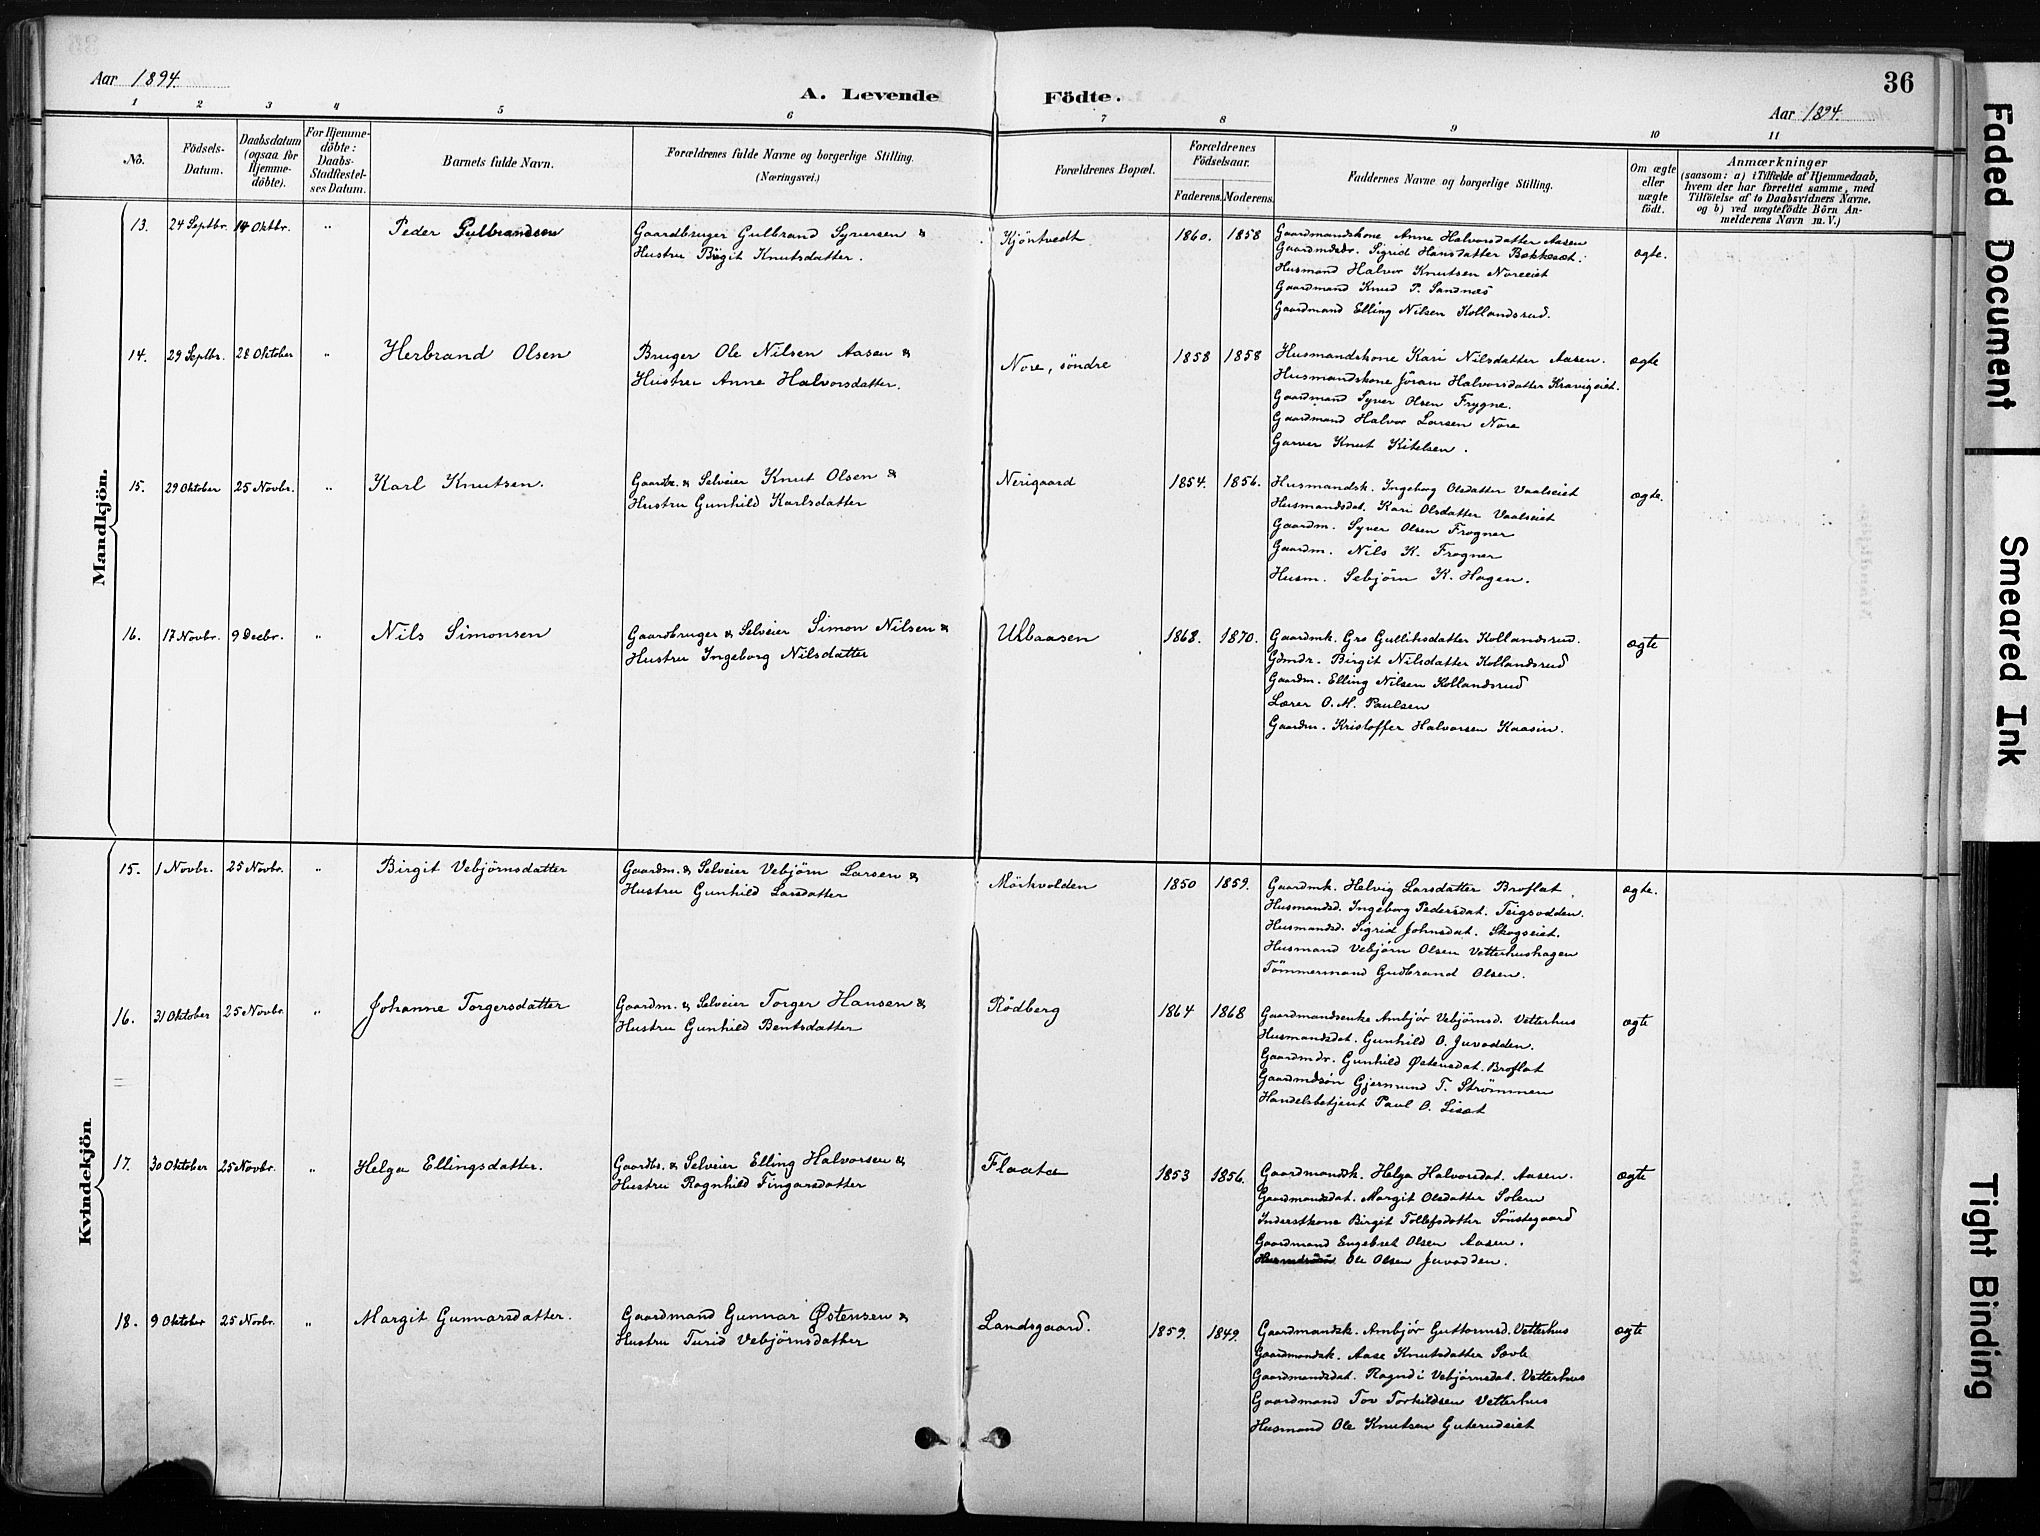 Aar 1894.
A. Levende Födte.
36
Aar 1894.
1 2 3 4 5 6 7 8 9 10 11
No.
Födsels-
Datum.
Daabsdatum
(ogsaa for
Hjemme-
döbte).
For Hjemme-
döbte:
Daabs-
Stadfæstel-
ses Datum.
Barnets fulde Navn.
Forældrenes fulde Navne og borgerlige Stilling.
(Næringsvei.)
Forældrenes Bopæl.
Forældrenes
Födselsaar.
Faderens. Moderens.
Faddernes Navne og borgerlige Stilling.
Om ægte
eller
uægte
födt.
Anmærkninger
(saasom: a) i Tilfælde af Hjemmedaab,
hvem der har forrettet samme, med
Tilföielse af to Daabsvidners Navne.
og b) ved uægtefödte Börn An-
melderens Navn m. V.)
Mandkjön.
13. 24 Septbr. 14 Oktbr. " Peder Gulbrandsen
Gaardbruger Gulbrand Syversen &
Hustru Birgit Knutsdatter.
Kjöntvedt 1860. 1858
Gaardmandskone Anne Halvorsdatter Aasen
Gaardmdsdr. Sigrid Hansdatter Bakkesæt.
Husmand Halvor Knutsen Noreeiet
Gaardmand Knud P. Sandnæs
Gaardmand Elling Nilsen Kollandsrud.
ægte.
14. 29 Septbr. 28 Oktober " Herbrand Olsen
Bruger Ole Nilsen Aasen &
Hustru Anne Halvorsdatter.
Nore, söndre 1858 1858
Husmandskone Kari Nilsdatter Aasen.
Husmandskone Jöran Halvorsdatter Kravigeiet.
Gaardmand Syver Olsen Frygne.
Gaardmand Halvor Larsen Nore
Garver Knut Kittelsen.
ægte
15. 29 Oktober 25 Novbr. " Karl Knutsen.
Gaardbr. & Selveier Knut Olsen &
Hustru Gunhild Karlsdatter
Nerigaard 1854. 1856.
Husmandsk. Ingeborg Olsdatter Vaalseiet
Husmandsdat. Kari Olsdatter Vaalseiet
Gaardm. Syver Olsen Frogner
Gaardm. Nils K. Frogner
Husm. Sebjörn K. Hagen.
ægte.
16. 17 Novbr. 9 Decbr. " Nils Simonsen
Gaardbruger & Selveier Simon Nilsen &
Hustru Ingeborg Nilsdatter
Ulbaasen 1868. 1870.
Gaardmk. Gro Gulliksdatter Kollandsrud.
Gdmdr. Birgit Nilsdatter Kollandsrud
Gaardm. Elling Nilsen Kollandsrud
Lærer O. M. Paulsen
Gaardm. Kristoffer Halvorsen Kaasin.
ægte
Kvindekjön
15. 1 Novbr. 25 Novbr. " Birgit Vebjörnsdatter
Gaardm. & Selveier Vebjörn Larsen &
Hustru Gunhild Larsdatter
Mörkvolden 1850 1859.
Gaardmk. Helvig Larsdatter Broflat
Husmandsd. Ingeborg Pedersdat. Teigsodden.
Husmandsd. Sigrid Johnsdat. Skogseiet.
Husmand Vebjörn Olsen Vetterhushagen
Tömmermand Gudbrand Olsen.
ægte.
16. 31 Oktober 25 Novbr. " Johanne Torgersdatter
Gaardm. & Selveier Torger Hansen &
Hustru Gunhild Bentsdatter
Rödberg 1864 1868
Gaardmandsenke Ambjör Vebjörnsd. Vetterhus
Husmandsdat. Gunhild O. Juvodden.
Gaardmdr. Gunhild Østensdat. Broflat
Gaardmdsön Gjermund T. Strömmen
Handelsbetjent Paul O. Lisæt
ægte
17. 30 Oktober 25 Novbr. " Helga Ellingsdatter.
Gaardbr. & Selveier Elling Halvorsen &
Hustru Ragnhild Fingarsdatter
Flaata 1853 1856.
Gaardmandsk. Helga Halvorsdat. Aasen.
Gaardmandsdat. Margit Olsdatter Solem
Inderstkone Birgit Tollefsdatter Sönstegaard
Gaardmand Engebret Olsen Aasen.
Ole Olsen Juvodden.
ægte
18. 9 Oktober 25 Novbr. " Margit Gunnarsdatter.
Gaardmand Gunnar Østensen &
Hustru Turid Vebjörnsdatter
Landsgaard. 1859. 1849.
Gaardmandsk. Ambjör Guttormsd. Vetterhus
Gaardmandsk. Aase Knutsdatter Sævle
Gaardmandsdat. Ragndi Vebjörnsdat. Vetterhus
Gaardmand Tov Torkildsen Vetterhus
Husmand Ole Knutsen Guterudeiet
ægte
Faded Document
Smeared Ink
Tight Binding